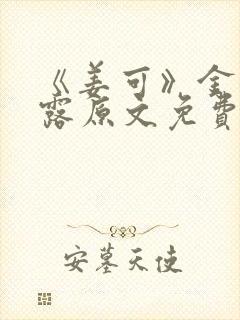 《姜可》金
露原文免费
安墓天使